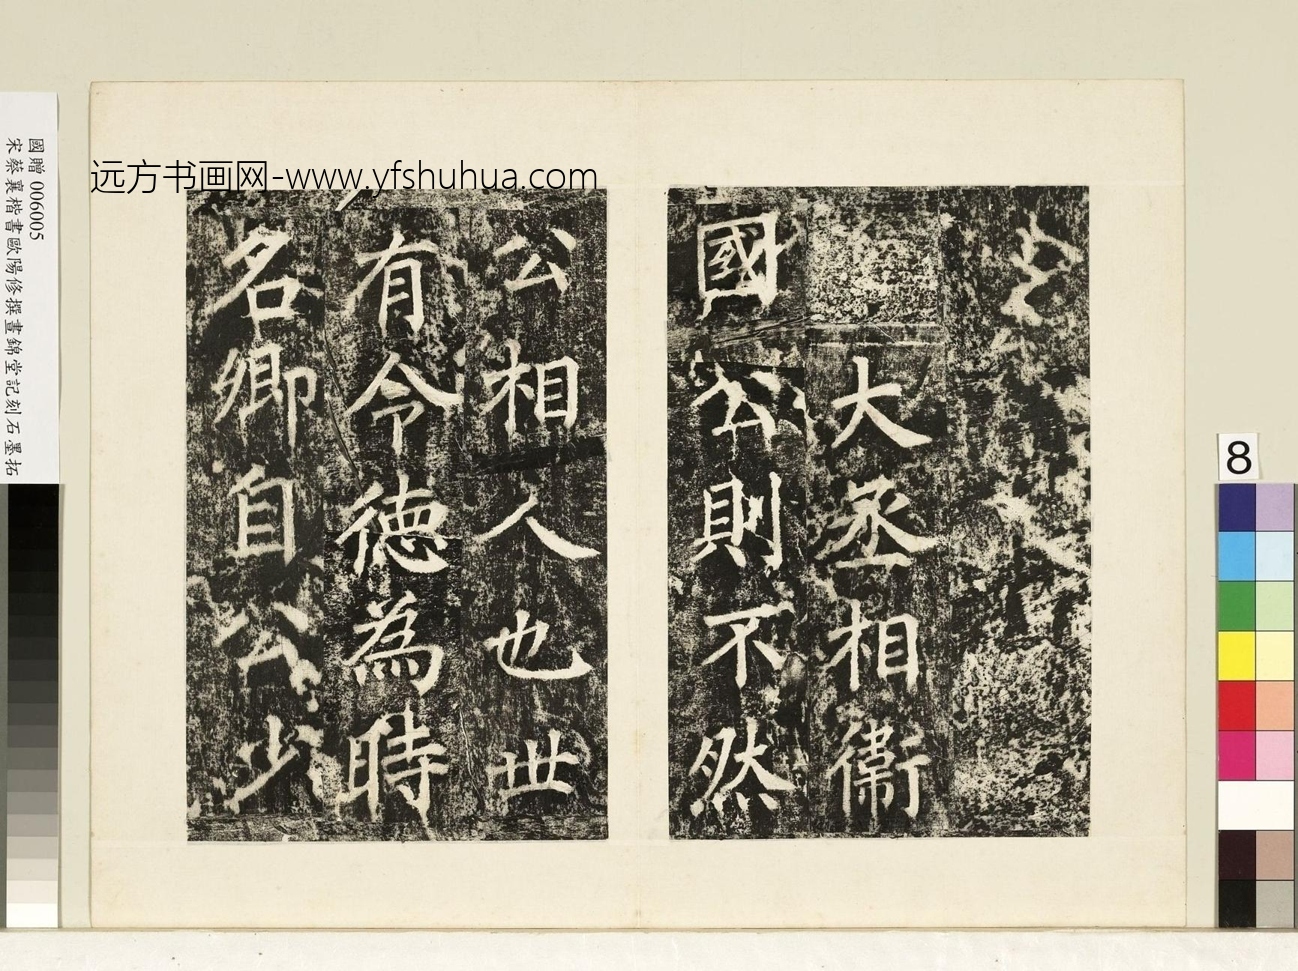 远方书画网-www.yfshuhua.com
大丞相衛
國公則不然
公相人也世
有令德為時
名卿自公少
國贈 006005
宋蔡襄楷書歐陽修撰晝錦堂記刻石墨拓
8